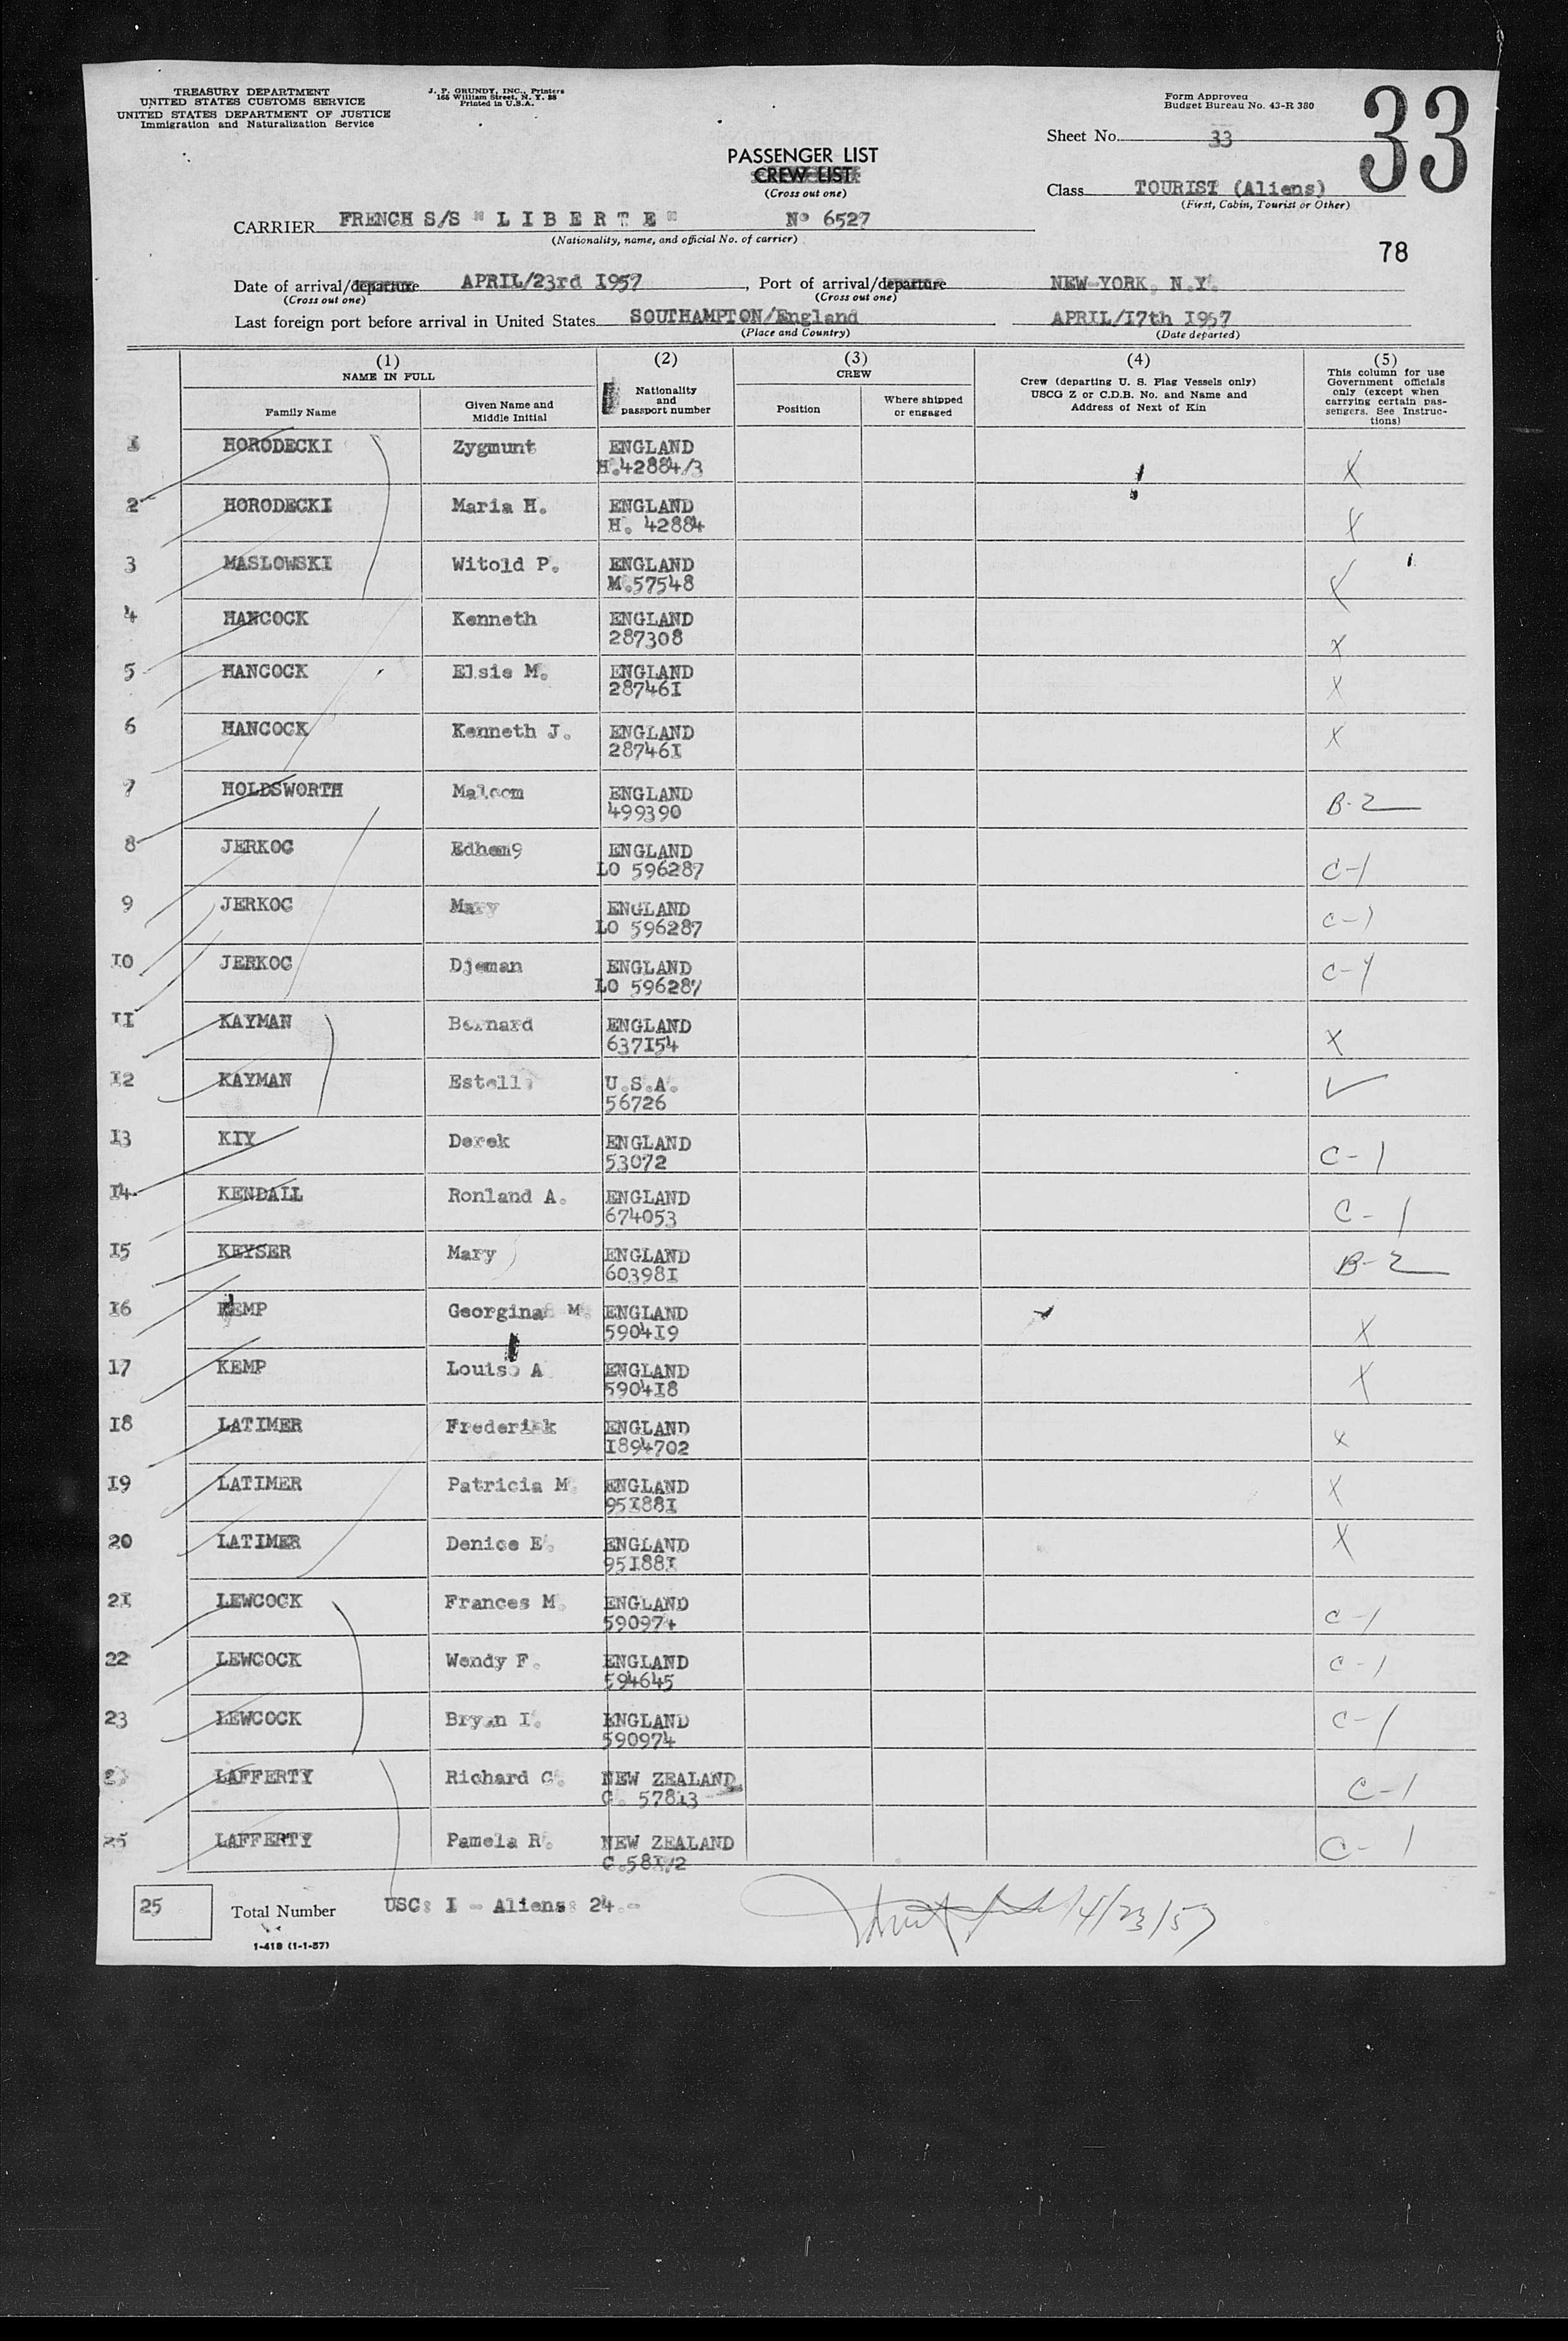 TREASURY DEPARTMENT
UNITED STATES CUSTOMS SERVICE
UNITED STATES DEPARTMENT OF JUSTICE
Immigration and Naturalization Service
J. P. GRUNDY, INC., Printers
165 William Street, N. Y. 38
Printed in U.S.A.
Form Approved
Budget Bureau No. 43-R 380
33
Sheet No. 33
PASSENGER LIST
CREW LIST
(Cross out one)
Class TOURIST (Aliens)
(First, Cabin, Tourist or Other)
CARRIER FRENCH S/S " L I B E R T E " No 6527
(Nationality, name, and official No. of carrier)
78
Date of arrival/departure APRIL/23rd I957, Port of arrival/departure NEW-YORK, N.Y.
(Cross out one) (Cross out one)
Last foreign port before arrival in United States SOUTHAMPTON/England APRIL/I7th I957
(Place and Country) (Date departed)
(1) NAME IN FULL
Family Name
Given Name and Middle Initial
(2) Nationality and passport number
(3) CREW
Position
Where shipped or engaged
(4) Crew (departing U. S. Flag Vessels only) USCG Z or C.D.B. No. and Name and Address of Next of Kin
(5) This column for use Government officials only (except when carrying certain passengers. See Instructions)
I HORODECKI Zygmunt ENGLAND X
H.42884/3
2 HORODECKI Maria H. ENGLAND X
H. 42884
3 MASLOWSKI Witold P. ENGLAND X
M.57548
4 HANCOCK Kenneth ENGLAND X
287308
5 HANCOCK Elsie M. ENGLAND X
28746I
6 HANCOCK Kenneth J. ENGLAND X
28746I
7 HOLDSWORTH Malcom ENGLAND B-2
499390
8 JERKOC ENGLAND C-1
LO 596287
9 JERKOC Mary ENGLAND C-1
LO 596287
I0 JERKOC Djeman ENGLAND C-1
LO 596287
II KAYMAN Bernard ENGLAND X
637I54
I2 KAYMAN U.S.A. ✓
56726
I3 KIY Derek ENGLAND C-1
53072
I4 KENDALL Ronland A. ENGLAND C-1
674053
I5 KEYSER Mary ENGLAND B-2
60398I
I6 KEMP Georgina M. ENGLAND X
5904I9
I7 KEMP Louise A ENGLAND X
5904I8
I8 LATIMER Frederik ENGLAND X
I894702
I9 LATIMER Patricia M. ENGLAND X
95I88I
20 LATIMER Denice E. ENGLAND X
95I88I
2I LEWCOCK Frances M. ENGLAND C-1
590974
22 LEWCOCK Wendy F. ENGLAND C-1
594645
23 LEWCOCK Bryan I. ENGLAND C-1
590974
LAFFERTY Richard C. NEW ZEALAND C-1
C. 57813
25 LAFFERTY Pamela R. NEW ZEALAND C-1
25 Total Number USC: I - Aliens: 24.-
4/23/57
I-418 (1-1-57)